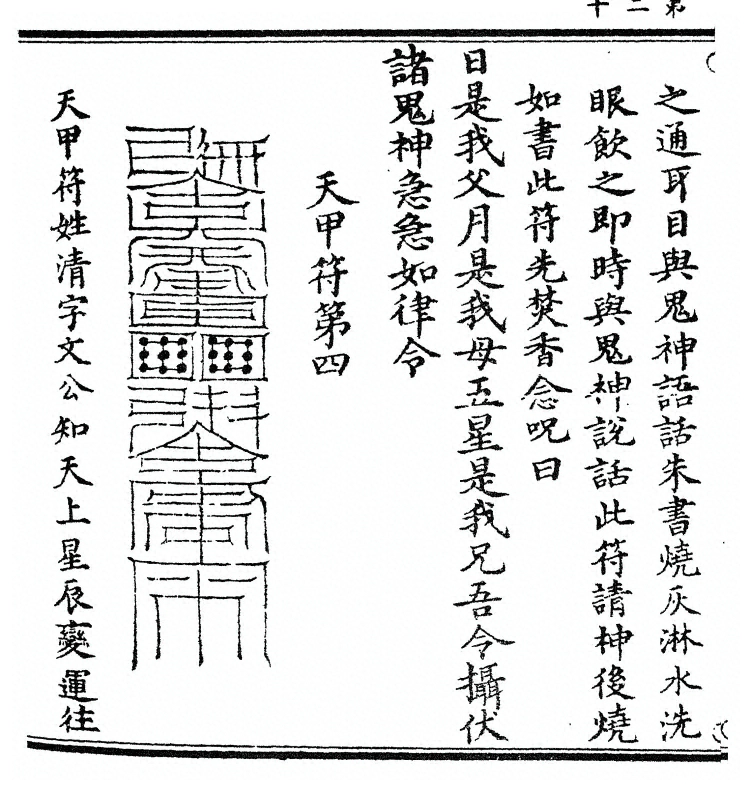 第二十
之通耳目與鬼神語話朱書燒灰淋水洗
眼飲之即時與鬼神說話此符請神後燒
如書此符先焚香念呪曰
日是我父月是我母五星是我兄吾令攝伏
諸鬼神急急如律令
天甲符第四
天甲符姓清字文公知天上星辰變運往